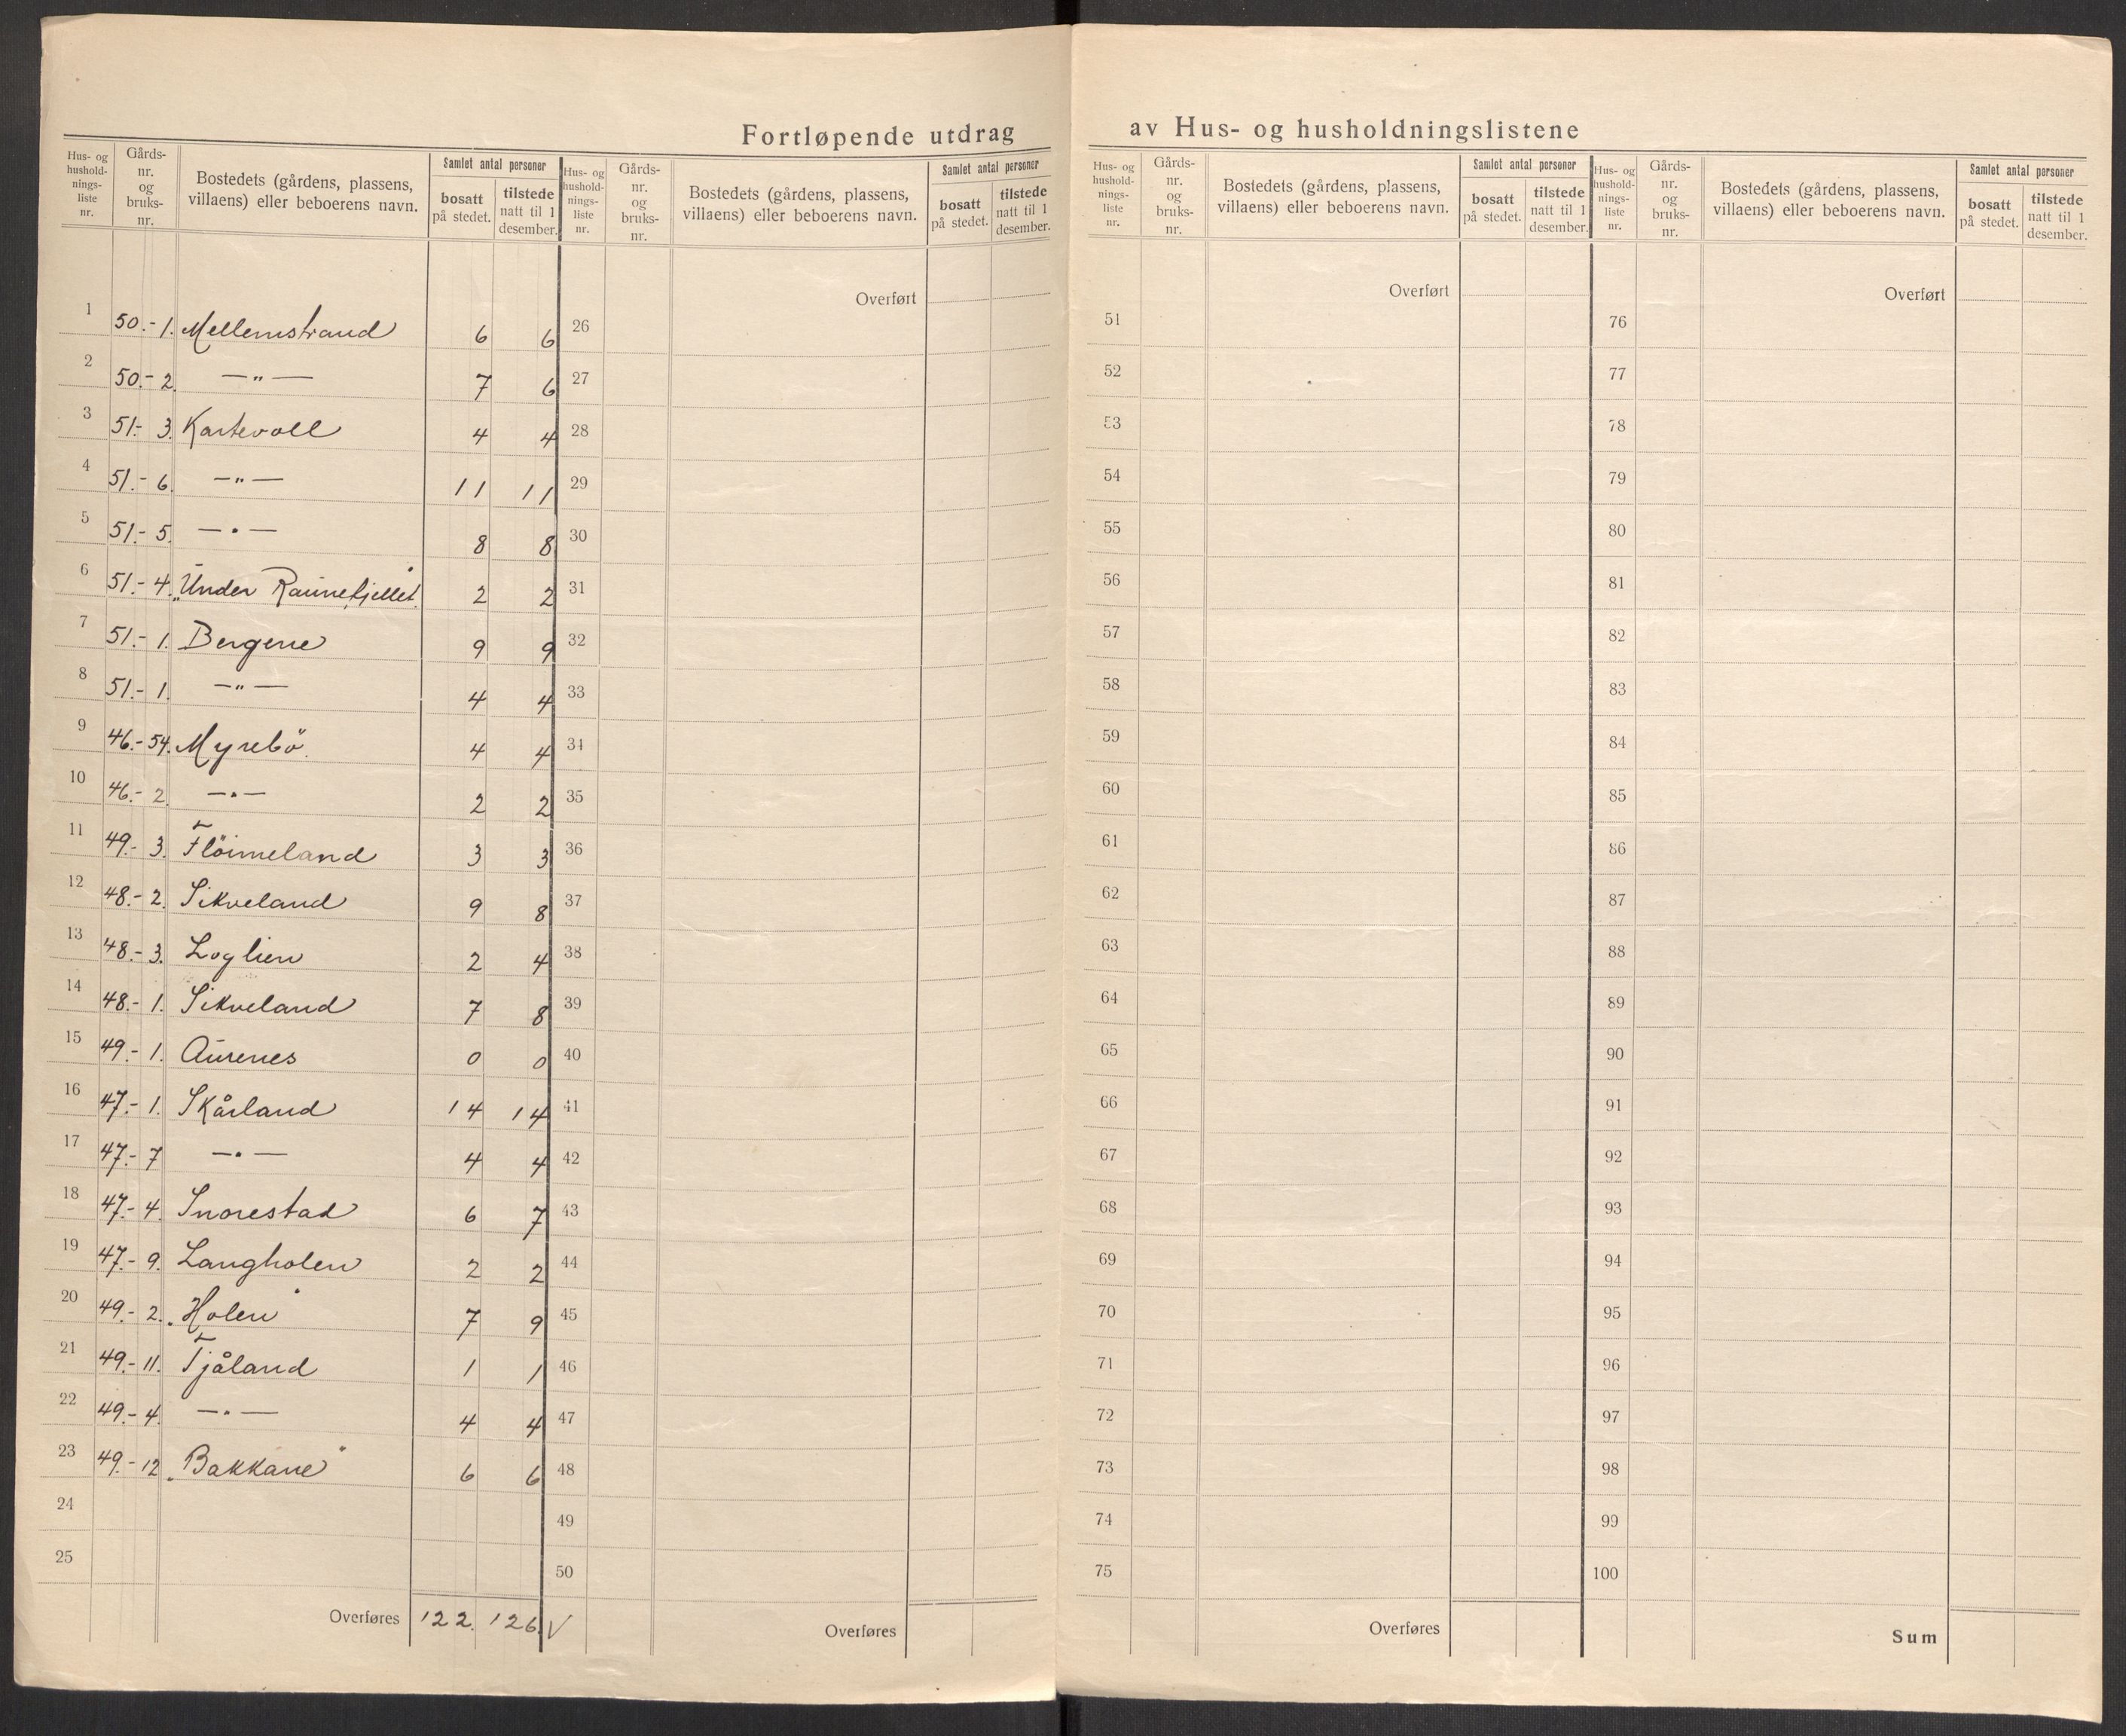 Fortløpende utdrag av Hus- og husholdningslistene
Hus- og hushold- nings- liste nr. | Gårds- nr. og bruks- nr. | Bostedets (gårdens, plassens, villaens) eller beboerens navn. | Samlet antal personer | bosatt på stedet. | tilstede natt til 1 desember.
Hus- og hushold- nings- liste nr. | Gårds- nr. og bruks- nr. | Bostedets (gårdens, plassens, villaens) eller beboerens navn. | Samlet antal personer | bosatt på stedet. | tilstede natt til 1 desember.
Hus- og hushold- nings- liste nr. | Gårds- nr. og bruks- nr. | Bostedets (gårdens, plassens, villaens) eller beboerens navn. | Samlet antal personer | bosatt på stedet. | tilstede natt til 1 desember.
Hus- og hushold- nings- liste nr. | Gårds- nr. og bruks- nr. | Bostedets (gårdens, plassens, villaens) eller beboerens navn. | Samlet antal personer | bosatt på stedet. | tilstede natt til 1 desember.
Overført Overført Overført
1 50.-1. Mellemstrand 6 6 26 51 76
2 50.-2. —"— 7 6 27 52 77
3 51.-3. Kartevoll 4 4 28 53 78
4 51.-6. —"— 11 11 29 54 79
5 51.-5. —"— 8 8 30 55 80
6 51.-4. "Under Raunefjellet" 2 2 31 56 81
7 51.-1. Bergene 9 9 32 57 82
8 51.-1. —"— 4 4 33 58 83
9 46.-54. Myrebö. 4 4 34 59 84
10 46.-2. —"— 2 2 35 60 85
11 49.-3. Flöimeland 3 3 36 61 86
12 48.-2. Sikveland 9 8 37 62 87
13 48.-3. Loglien 2 4 38 63 88
14 48.-1. Sikveland 7 8 39 64 89
15 49.-1. Aurenes 0 0 40 65 90
16 47.-1. Skårland 14 14 41 66 91
17 47.-7 —"— 4 4 42 67 92
18 47.-4. Snorestad 6 7 43 68 93
19 47.-9. Langholen 2 2 44 69 94
20 49.-2. "Holen" 7 9 45 70 95
21 49.-11. Tjåland 1 1 46 71 96
22 49.-4. —"— 4 4 47 72 97
23 49.-12 "Bakkane" 6 6 48 73 98
24 49 74 99
25 50 75 100
Overføres 122. 126. V Overføres Overføres Sum